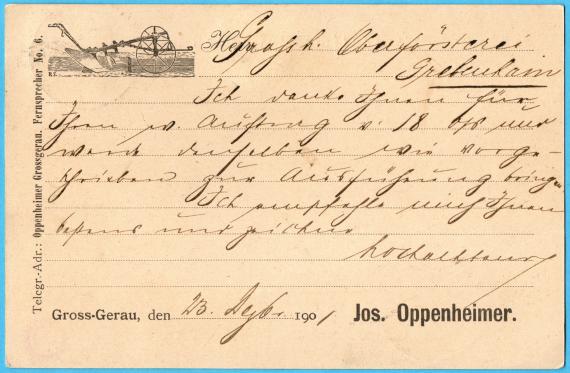 Telegr.-Adr.: Oppenheimer Grossgerau. Fernsprecher No. 6.
Herrn Grossh. Oberförsterei
Grebenhain
Ich danke Ihnen für
Ihren w. Auftrag v. 18 und
werde denselben wie vorge-
schrieben zur Ausführung bringen
Ich empfehle mich Ihnen
bestens und zeichne
hochachtend
Gross-Gerau, den 23. Dezb. 1901 Jos. Oppenheimer.